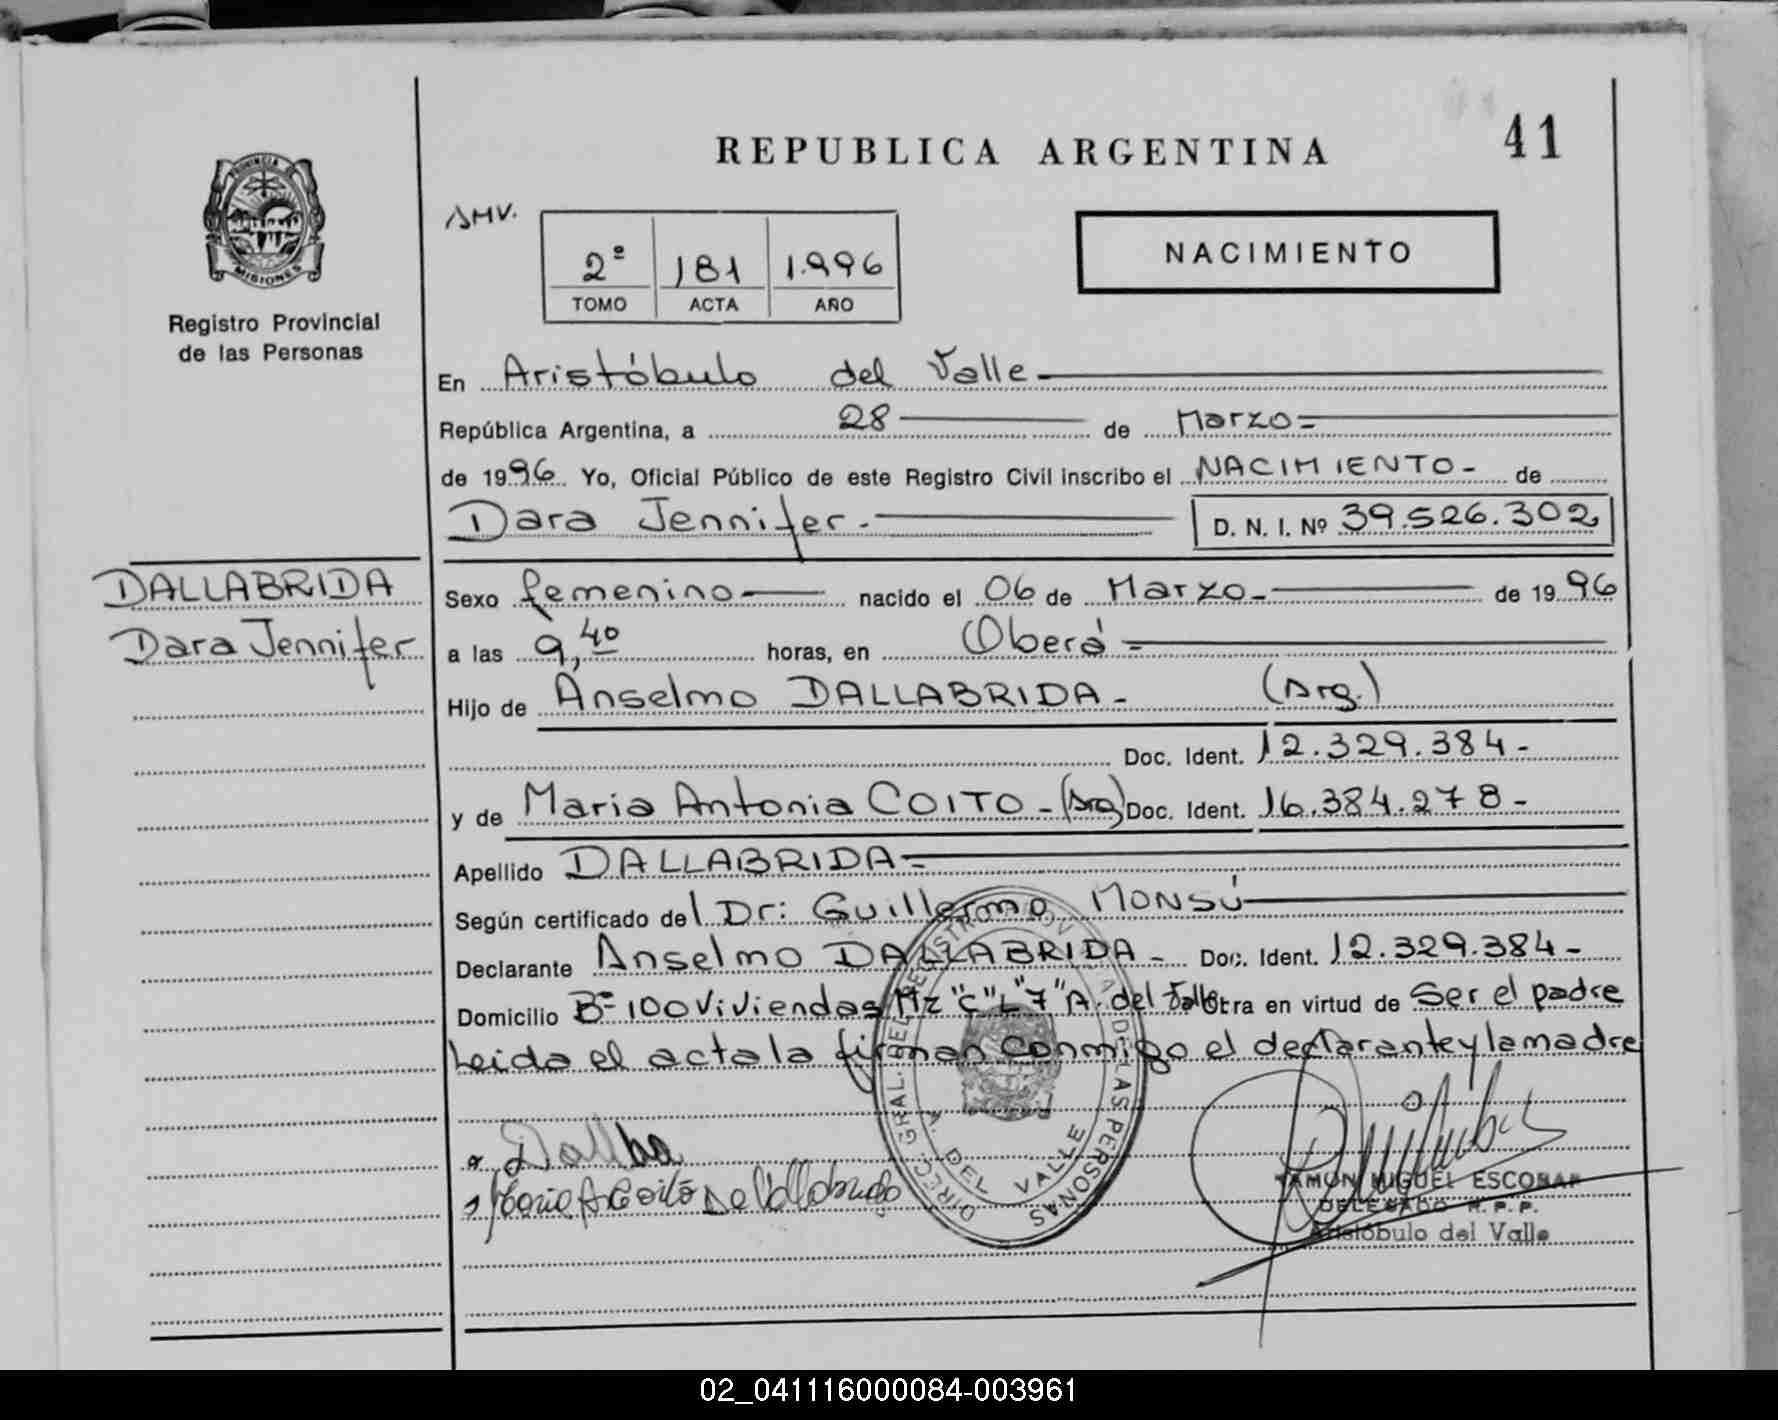 REPUBLICA ARGENTINA
41
PROVINCIA DE
MISIONES
Registro Provincial
de las Personas
AMV.
2º 181 1.996
TOMO ACTA AÑO
NACIMIENTO
En Aristóbulo del Valle
República Argentina, a 28 de Marzo
de 1996. Yo, Oficial Público de este Registro Civil inscribo el NACIMIENTO- de
Dara Jennifer.- D. N. I. Nº 39.526.302
DALLABRIDA
Dara Jennifer
Sexo femenino nacido el 06 de Marzo- de 1996
a las 9,40 horas, en Oberá-
Hijo de Anselmo DALLABRIDA- (Arg.)
Doc. Ident. 12.329.384-
y de Maria Antonia COITO-(Arg) Doc. Ident. 16.384.278-
Apellido DALLABRIDA-
Según certificado del Dr: Guillermo MONSÚ
Declarante Anselmo DALLABRIDA- Doc. Ident. 12.329.384-
Domicilio Bº 100 Viviendas Mz "C" L "7" A. del Valle Otra en virtud de Ser el padre
Leida el acta la firman conmigo el declarante y la madre
DIREC. GRAL. DEL REGISTRO PROV DE LAS PERSONAS
A. DEL VALLE
Maria A Coito De Dallabrida
RAMON MIGUEL ESCOBAR
DELEGADO R. P. P.
Aristóbulo del Valle
02_041116000084-003961